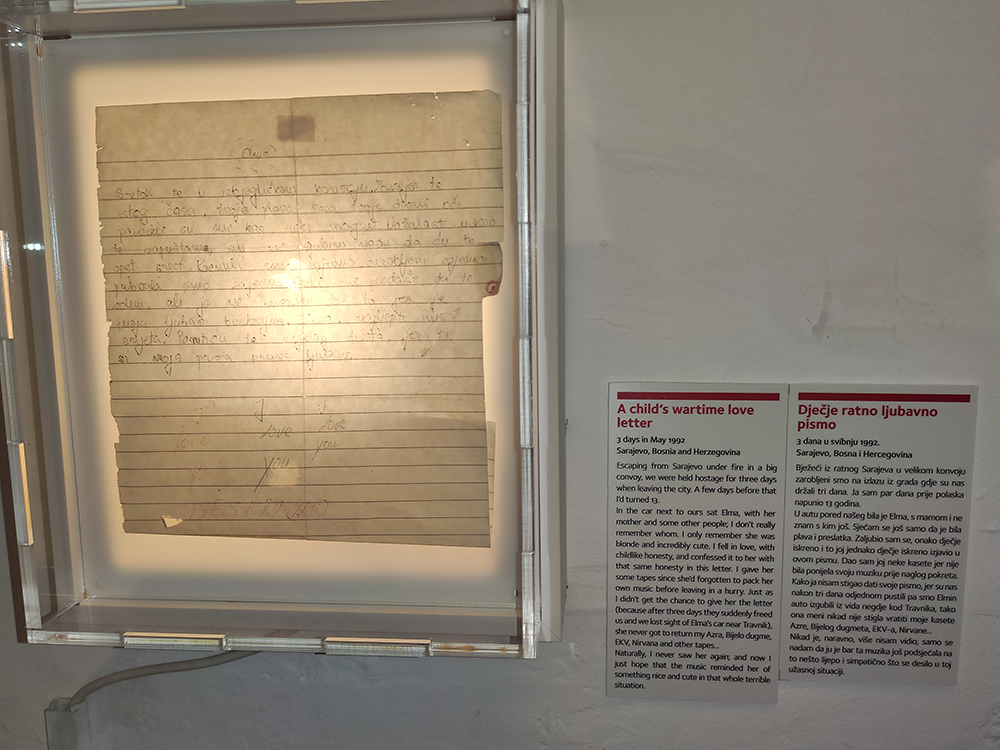 (Elma)
Sretoh te u izbjegličkom konvoju. Zavoljeh te
istog časa, tvoja plava kosa tvoje divne oči
privukle su me kao neki magnet. Nažalost uskoro
te napuštam, ali ne gubim nadu da ću te
opet sresti.
odvesti, ali ja ne
moja ljubav
svijeta. Pamtiću te
si moja prva prava ljubav.
I I I
love love love
you you
A child's wartime love
letter
3 days in May 1992
Sarajevo, Bosnia and Herzegovina
Escaping from Sarajevo under fire in a big
convoy, we were held hostage for three days
when leaving the city. A few days before that
I'd turned 13.
In the car next to ours sat Elma, with her
mother and some other people; I don't really
remember whom. I only remember she was
blonde and incredibly cute. I fell in love, with
childlike honesty, and confessed it to her with
that same honesty in this letter. I gave her
some tapes since she'd forgotten to pack her
own music before leaving in a hurry. Just as
I didn't get the chance to give her the letter
(because after three days they suddenly freed
us and we lost sight of Elma's car near Travnik),
she never got to return my Azra, Bijelo dugme,
EKV, Nirvana and other tapes...
Naturally, I never saw her again; and now I
just hope that the music reminded her of
something nice and cute in that whole terrible
situation.
Dječje ratno ljubavno
pismo
3 dana u svibnju 1992.
Sarajevo, Bosna i Hercegovina
Bježeći iz ratnog Sarajeva u velikom konvoju
zarobljeni smo na izlazu iz grada gdje su nas
držali tri dana. Ja sam par dana prije polaska
napunio 13 godina.
U autu pored našeg bila je Elma, s mamom i ne
znam s kim još. Sjećam se još samo da je bila
plava i preslatka. Zaljubio sam se, onako dječje
iskreno i to joj jednako dječje iskreno izjavio u
ovom pismu. Dao sam joj neke kasete jer nije
bila ponijela svoju muziku prije naglog pokreta.
Kako ja nisam stigao dati svoje pismo, jer su nas
nakon tri dana odjednom pustili pa smo Elmin
auto izgubili iz vida negdje kod Travnika, tako
ona meni nikad nije stigla vratiti moje kasete
Azre, Bijelog dugmeta, EKV-a, Nirvane...
Nikad je, naravno, više nisam vidio; samo se
nadam da ju je bar ta muzika još podsjećala na
to nešto lijepo i simpatično što se desilo u toj
užasnoj situaciji.